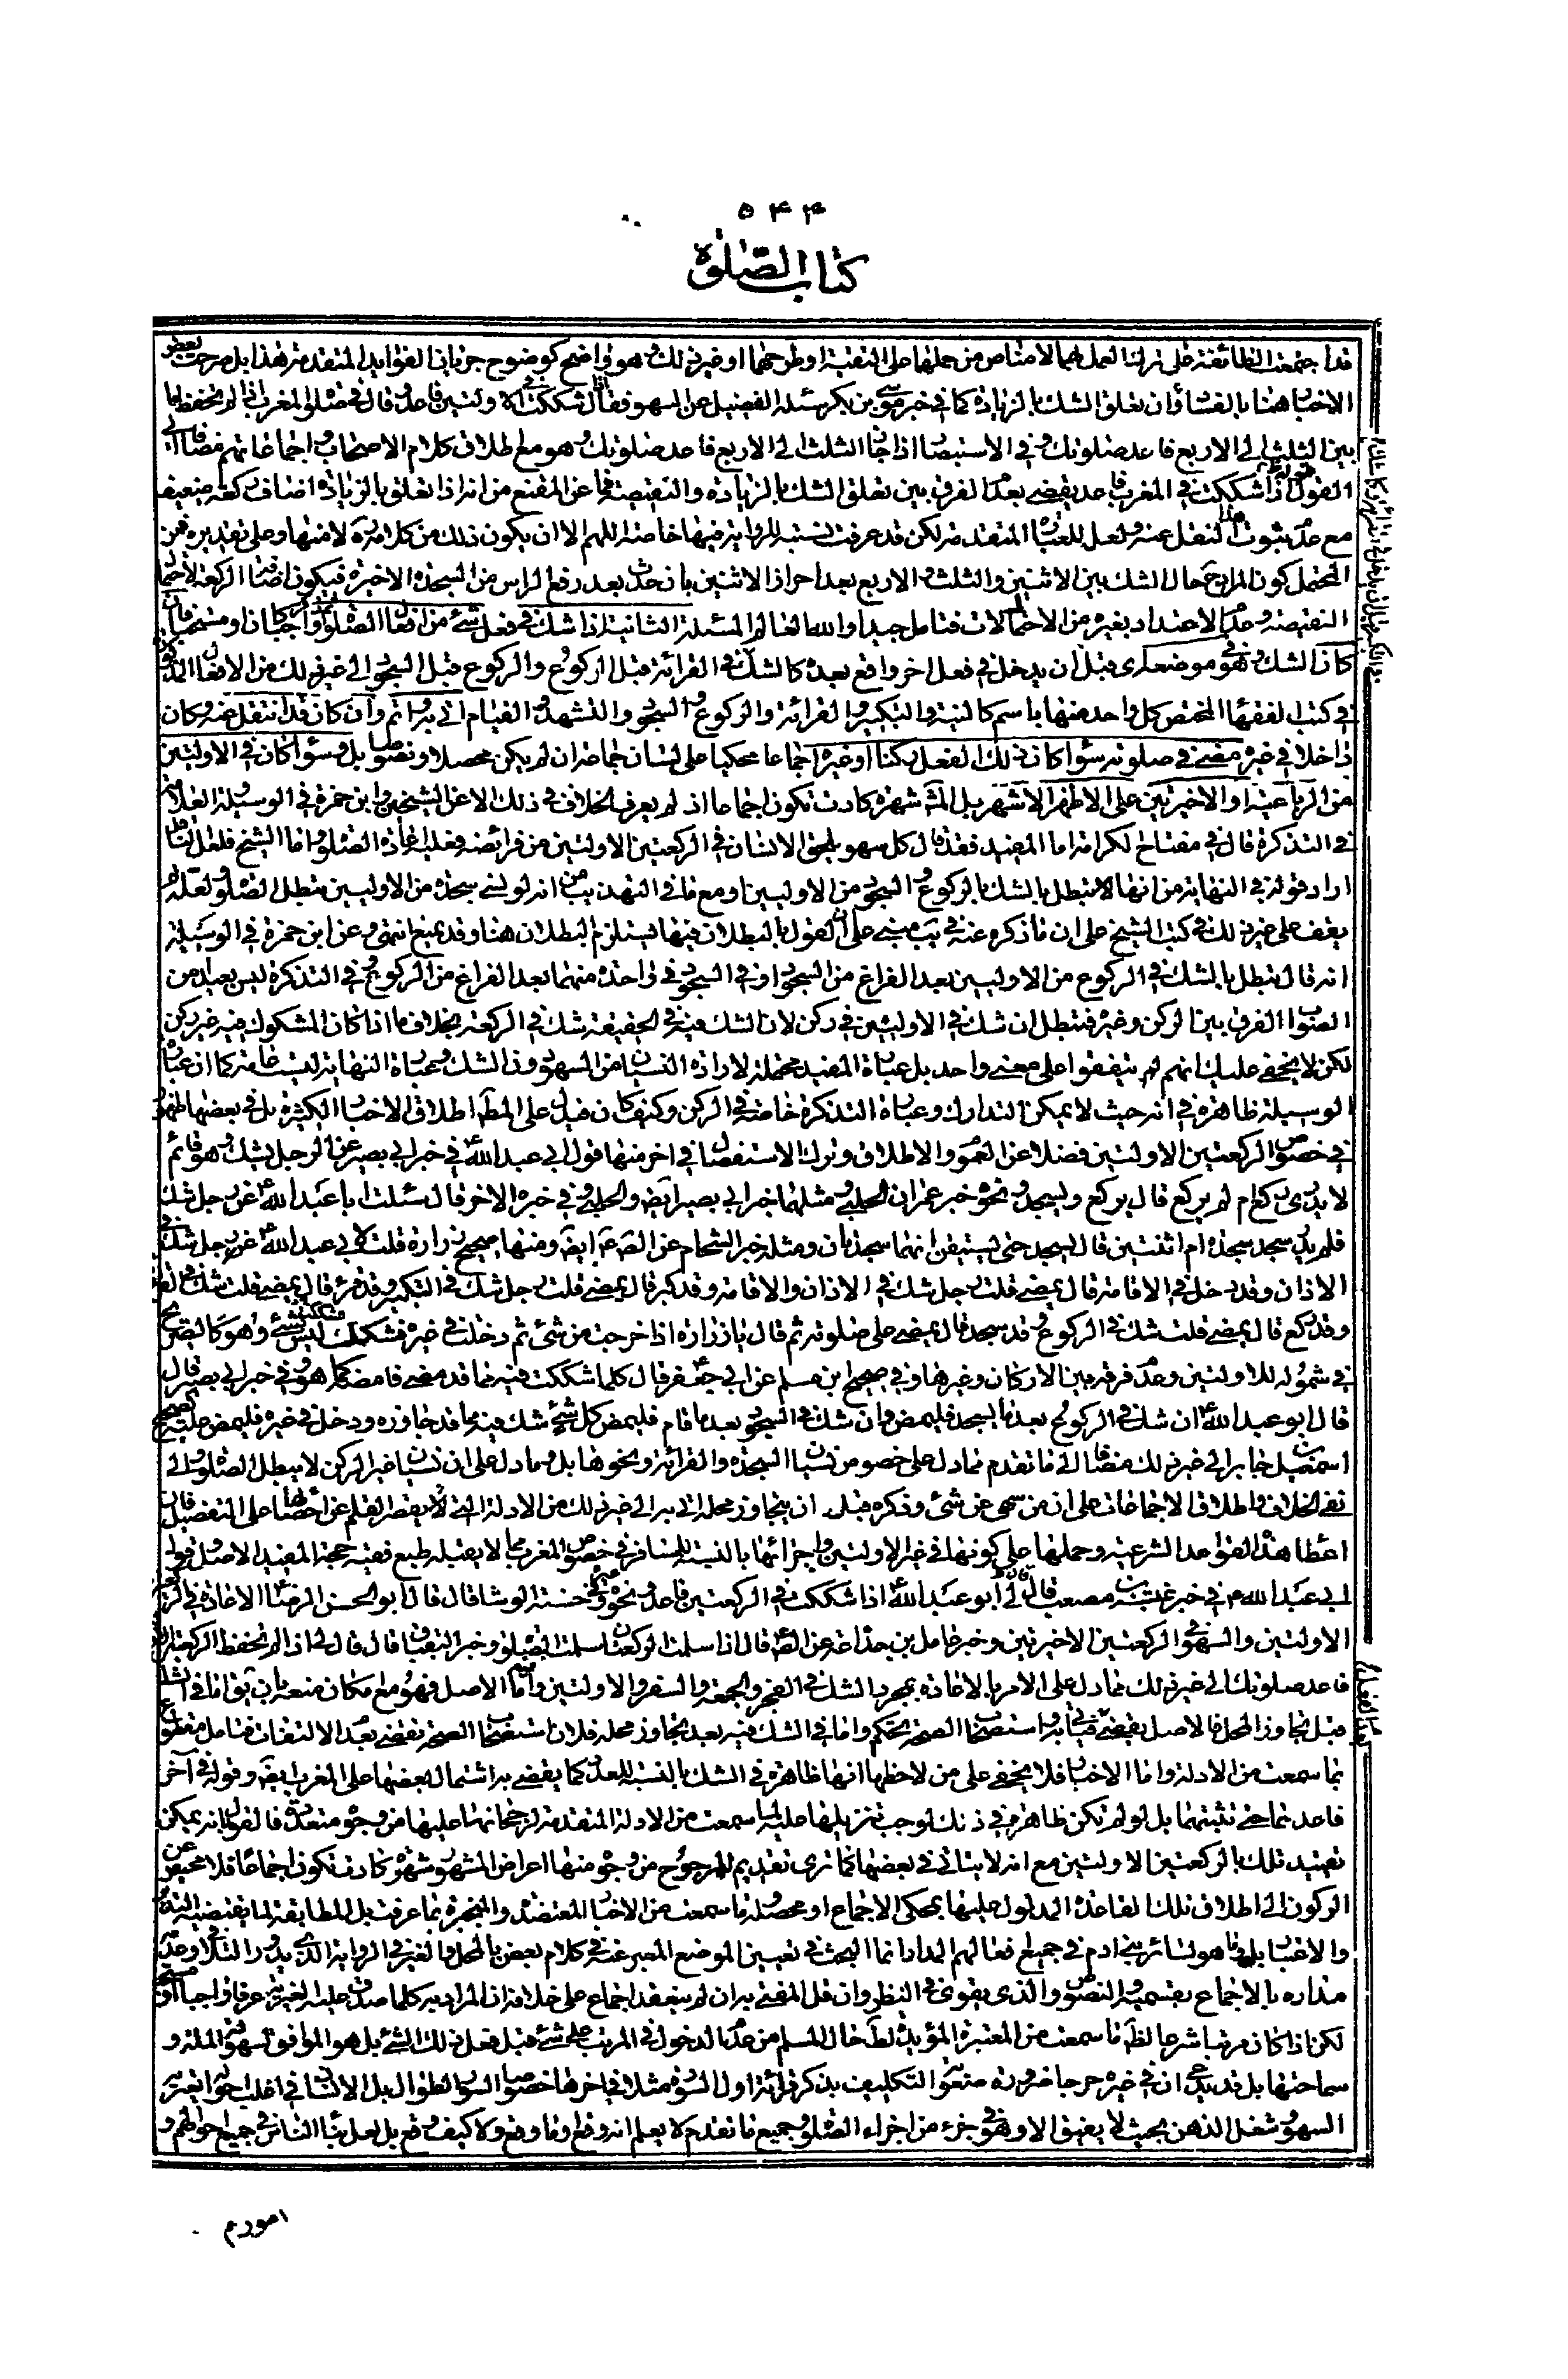 ۵۴۴
كتاب الصلوة
قد اجتمعت الطائفة على ترك العمل بهما لا مناص من حملها على التقية او طرحهما او غير ذلك وهو واضح كوضوح جريان الفوايد المتقدمة هذا بل صرحت بعض
الاخبار هنا بالفساد وان تعلق الشك بالزيادة كما في خبر موسى بن بكر سئله الفضيل عن السهو فقال اذا شككت في الاولتين فاعد وقال في صلوة المغرب اذا لم تحفظ ما
بين الثلث الى الاربع فاعد صلوتك وفي الاستبصار اذا جاز الثلث الى الاربع فاعد صلوتك وهو مع اطلاق كلام الاصحاب واجماعاتهم مضافا الى
القول اذا شككت في المغرب فاعد يقضي بعدم الفرق بين تعلق الشك بالزيادة والنقيصة فما عن المقنع من انه اذا تعلق بالزيادة اضاف ركعة ضعيف
مع عدم ثبوت النقل عنه ولعل للعبارة المتقدمة لكن قد عرفت نسبة الرواية فيها خاصة اللهم الا ان يكون ذلك من كلامه لا منها وعلى تقديره فمن
المحتمل كون المراد حال الشك بين الاثنتين والثلث والاربع بعد احراز الاثنتين بان حدث بعد رفع الراس من السجدة الاخيرة فيكون اضافة الركعة لاحتمال
النقيصة وعدم الاعتداد بغيره من الاحتمالات فتامل جيدا والله العالم المسئلة الثانية اذا شك في فعل شئ من افعال الصلوة واجبا كان او مستحبا فان
كان الشك وهو في موضعه اى قبل ان يدخل في فعل اخر واقع بعده كالشك في القرائة قبل الركوع والركوع قبل السجود الى غير ذلك من الافعال المذكورة
في كتب الفقهاء المختص كل واحد منها باسم كالنية والتكبير والقرائة والركوع والسجود والتشهد والقيام اتى به واتم وان كان قد انتقل عنه وكان
داخلا في غيره مضى في صلوته سواء كان ذلك الفعل ركنا او غيره اجماعا محكيا على لسان جماعة ان لم يكن محصلا ونصوصا بل وسواء كان في الاولتين
من الرباعية او الاخيرتين على الاظهر الاشهر بل المش شهرة كادت تكون اجماعا اذ لم يعرف الخلاف في ذلك الا عن الشيخين وابن حمزة في الوسيلة والعلامة
في التذكرة قال في مفتاح الكرامة اما المفيد فقد قال كل سهو يلحق الانسان في الركعتين الاولتين من فرائضه فعليه اعادة الصلوة واما الشيخ فلعل الناقل
اراد قوله في النهاية من انها لا تبطل بالشك بالركوع والسجود من الاوليين او مع ما في التهذيب من انه لو نسي سجدة من الاوليين تبطل الصلوة ولعله لم
يقف على غير ذلك في كتب الشيخ على ان ما ذكره عنه في يب مبني على ان القول بالبطلان فيها يستلزم البطلان هنا وقد يمنع انتهى وعن ابن حمزة في الوسيلة
انه قال تبطل بالشك في الركوع من الاوليين بعد الفراغ من السجود او في السجود في واحدة منهما بعد الفراغ من الركوع وفي التذكرة ليس بعيدا من
الصواب الفرق بين الركن وغيره فتبطل ان شك في الاوليين في ركن لان الشك فيه في الحقيقة شك في الركعة بخلاف ما اذا كان المشكوك فيه غير ركن
لكن لا يخفى عليك انهم لم يتفقوا على معنى واحد بل عبارة المفيد محتملة لارادة النسيان من السهو دون الشك وعبارة النهاية ليست خاصة كما ان عبارة
الوسيلة ظاهرة في انه حيث لا يمكن التدارك وعبارة التذكرة خاصة في الركن وكيف كان فيدل على المط اطلاق الاخبار الكثيرة بل في بعضها ظهور
في خصوص الركعتين الاولتين فضلا عن العموم والاطلاق وترك الاستفصال في اخر منها قول ابي عبد الله ع في خبر ابي بصير عن الرجل يشك وهو قائم
لا يدرى ركع ام لم يركع قال يركع ويسجد ونحوه خبر عمران الحلبي ومثلهما خبر ابي بصير ايضا والحلبي وفي خبره الاخر قال سئلت ابا عبد الله ع عن رجل شك
فلم يدر سجد سجدة ام اثنتين قال يسجد حتى يستيقن انهما سجدتان ومثله خبر الشحام عن الصادق ع ايضا ومنها صحيح زرارة قلت لابي عبد الله ع رجل شك في
الاذان وقد دخل في الاقامة قال يمضي قلت رجل شك في الاذان والاقامة وقد كبر قال يمضي قلت رجل شك في التكبير وقد قرأ قال يمضي قلت شك في القرائة
وقد ركع قال يمضي قلت شك في الركوع وقد سجد قال يمضي على صلوته ثم قال يا زرارة اذا خرجت من شئ ثم دخلت في غيره فشكك ليس بشئ وهو كالصريح
في شموله للاولتين وعدم فرقه بين الاركان وغيرها وفي صحيح ابن مسلم عن ابي جعفر قال كلما شككت فيه مما قد مضى فامضه كما هو وفي خبر ابي بصير قال
قال ابو عبد الله ع ان شك في الركوع بعد ما سجد فليمض وان شك في السجود بعد ما قام فليمض كل شئ شك فيه مما قد جاوزه ودخل في غيره فليمض عليه كصحيح
اسمعيل بن جابر الى غير ذلك مضافا الى ما تقدم مما دل على خصوص نسيان السجدة والقرائة ونحوها بل ومما دل على ان نسيان غير الركن لا يبطل الصلوة والى
نفي الخلاف واطلاق الاجماعات على ان من سهى عن شئ وذكره قبل ان يتجاوز محله اتى به الى غير ذلك من الادلة التي لا يقصر القلم عن احصائها على التفصيل فان
اعطاء هذه القواعد الشرعية وحملها على كونها في غير الاولتين واجرائها بالنسبة للمسافر في خصوص المغرب مما لا يقبله طبع فقيه حجة المفيد الاصل وقول
ابي عبد الله ع في خبر عنبسة بن مصعب قال لي ابو عبد الله ع اذا شككت في الركعتين فاعد ونحوه غيره وفي حسنة الوشا قال قال ابو الحسن الرضا ع الاعادة في الركعتين
الاولتين والسهو في الركعتين الاخيرتين وخبر عامر بن جذاعة عن الصادق ع قال اذا سلمت الركعتان سلمت الصلوة وخبر البقباق قال قال لي اذا لم تحفظ الركعتين الاولتين
فاعد صلوتك الى غير ذلك مما دل على الامر بالاعادة بمجرد الشك في الفجر والجمعة والسفر والاولتين واما الاصل فهو مع امكان منعه بان يقو اما في الشك
قبل تجاوز المحل فالاصل يقضي باتيانه واستصحاب الصحة محكم واما في الشك فيه بعد تجاوز محله فلان استصحاب الصحة يقضي بعدم الالتفات فتامل مقطوع
بما سمعت من الادلة واما الاخبار فلا يخفى على من لاحظها انها ظاهرة في الشك بالنسبة للعدد كما يقضي به اشتمال بعضها على المغرب ايضا وقوله في آخر
فاعد بما حتى تثبتهما بل لو لم تكن ظاهرة في ذلك لوجب تنزيلها عليه لما سمعت من الادلة المتقدمة لرجحانها عليها من وجوه متعددة فالقول بانه يمكن
تقييد تلك بالركعتين الاولتين مع انه لا يتاتى في بعضها كما ترى تقديم للمرجوح من وجوه منها اعراض المشهور شهرة كادت تكون اجماعا فلا محيص عن
الركون الى اطلاق تلك القاعدة المدلول عليها بمحكى الاجماع او محصله وما سمعت من الاخبار المعتضدة والمنجبرة بما عرفت بل المطابقة لما يقتضيه التدبر
والاعتبار بل وما هو لسائر بني ادم في جميع فعالهم المدار انما البحث في تعيين الموضع المعبر عنه في كلام بعض بالمحل وبالغير في الرواية الذي يدور التلافي وعدمه
مداره بالاجماع بقسميه والنصوص والذي يقوى في النظر وان قل المفتي به ان لم ينعقد اجماع على خلافه ان المراد به كلما صدق عليه الغيرية عرفا واجبا او مستحبا
لكن اذا كان مرتبا شرعا لظ ما سمعت من المعتبرة المؤيد بظ حال المسلم من عدم الدخول في المرتب على شئ قبل فعل ذلك الشئ بل هو الموافق لسهولة الملة و
سماحتها بل قد يدعى ان في غيره حرجا ضرورة صعوبة التكليف بذكر قرائة اول السورة مثلا في اخرها خصوصا السور الطوال بل الانسان في اغلب احواله يعتريه
السهو وشغل الذهن بحيث لا يفيق الا وهو في جزء من اجزاء الصلوة وجميع ما تقدم لا يعلم انه وقع او ما وقع ولا كيف وقع بل لعل بناء الناس في جميع احوالهم و
امورهم